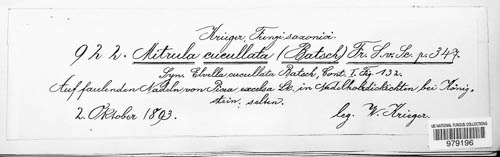 Krieger, Fungi saxonici.
922. Mitrula cucullata (Batsch) Fr. S. v. Sc. p. 347.
Syn. Elvella cucullata Batsch, Cont. I. Fig. 132.
Auf faulenden Nadeln von Picea excelsa Lk. in Nadelholzdickichten bei König,
stein; selten.
2. Oktober 1893. leg. W. Krieger.
US NATIONAL FUNGUS COLLECTIONS
979196